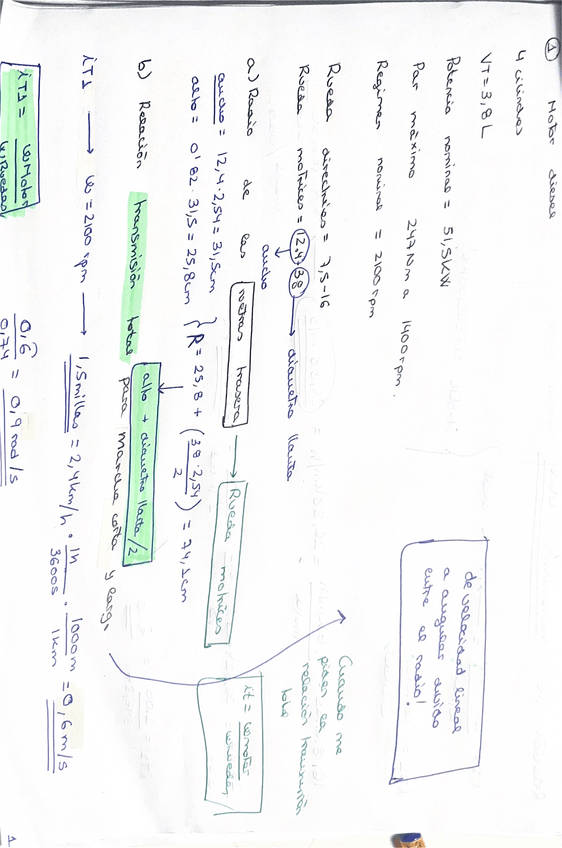 ① Motor diesel
4 cilindros
VT = 3,8 L
Potencia nominal = 51,5 KW
Par máximo 247 Nm a 1400 rpm.
Regimen nominal = 2100 rpm
Rueda directrices = 7,5-16
Rueda motrices = 12,4-38 → diametro llanta
ancho
a) Radio de las ruedas trasera → Rueda motrices
ancho = 12,4 · 2,54 = 31,5cm
alto = 0'82 · 31,5 = 25,8cm } R = 25,8 + (38 · 2,54 / 2) = 74,1cm
alto + diametro llanta/2
b) Relación transmisión total para marcha corta y larga
iT1 → w = 2100 rpm → 1,5 millas = 2,4 km/h · 1h/3600s · 1000m/1km = 0,6 m/s
iT1 = wMotor / wRuedas
0,6 / 0,74 = 0,9 rad/s
de velocidad lineal
a angular divido
entre el radio!
Cuando me
piden la
relación transmisión
total
it = wmotor / wruedas
1